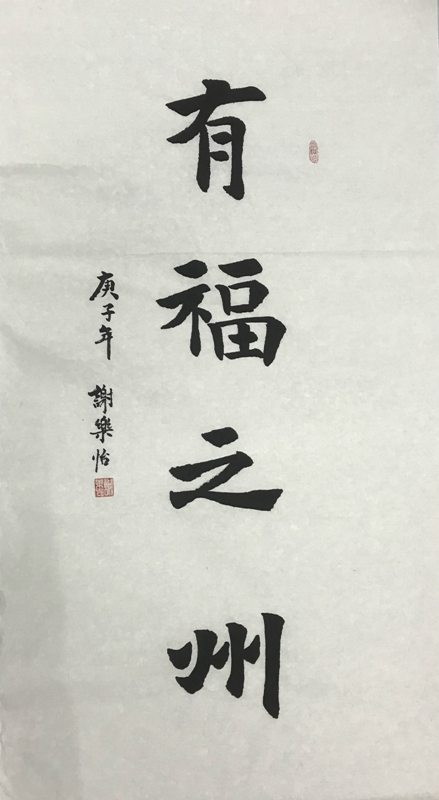 有福之州
庚子年 謝樂怡